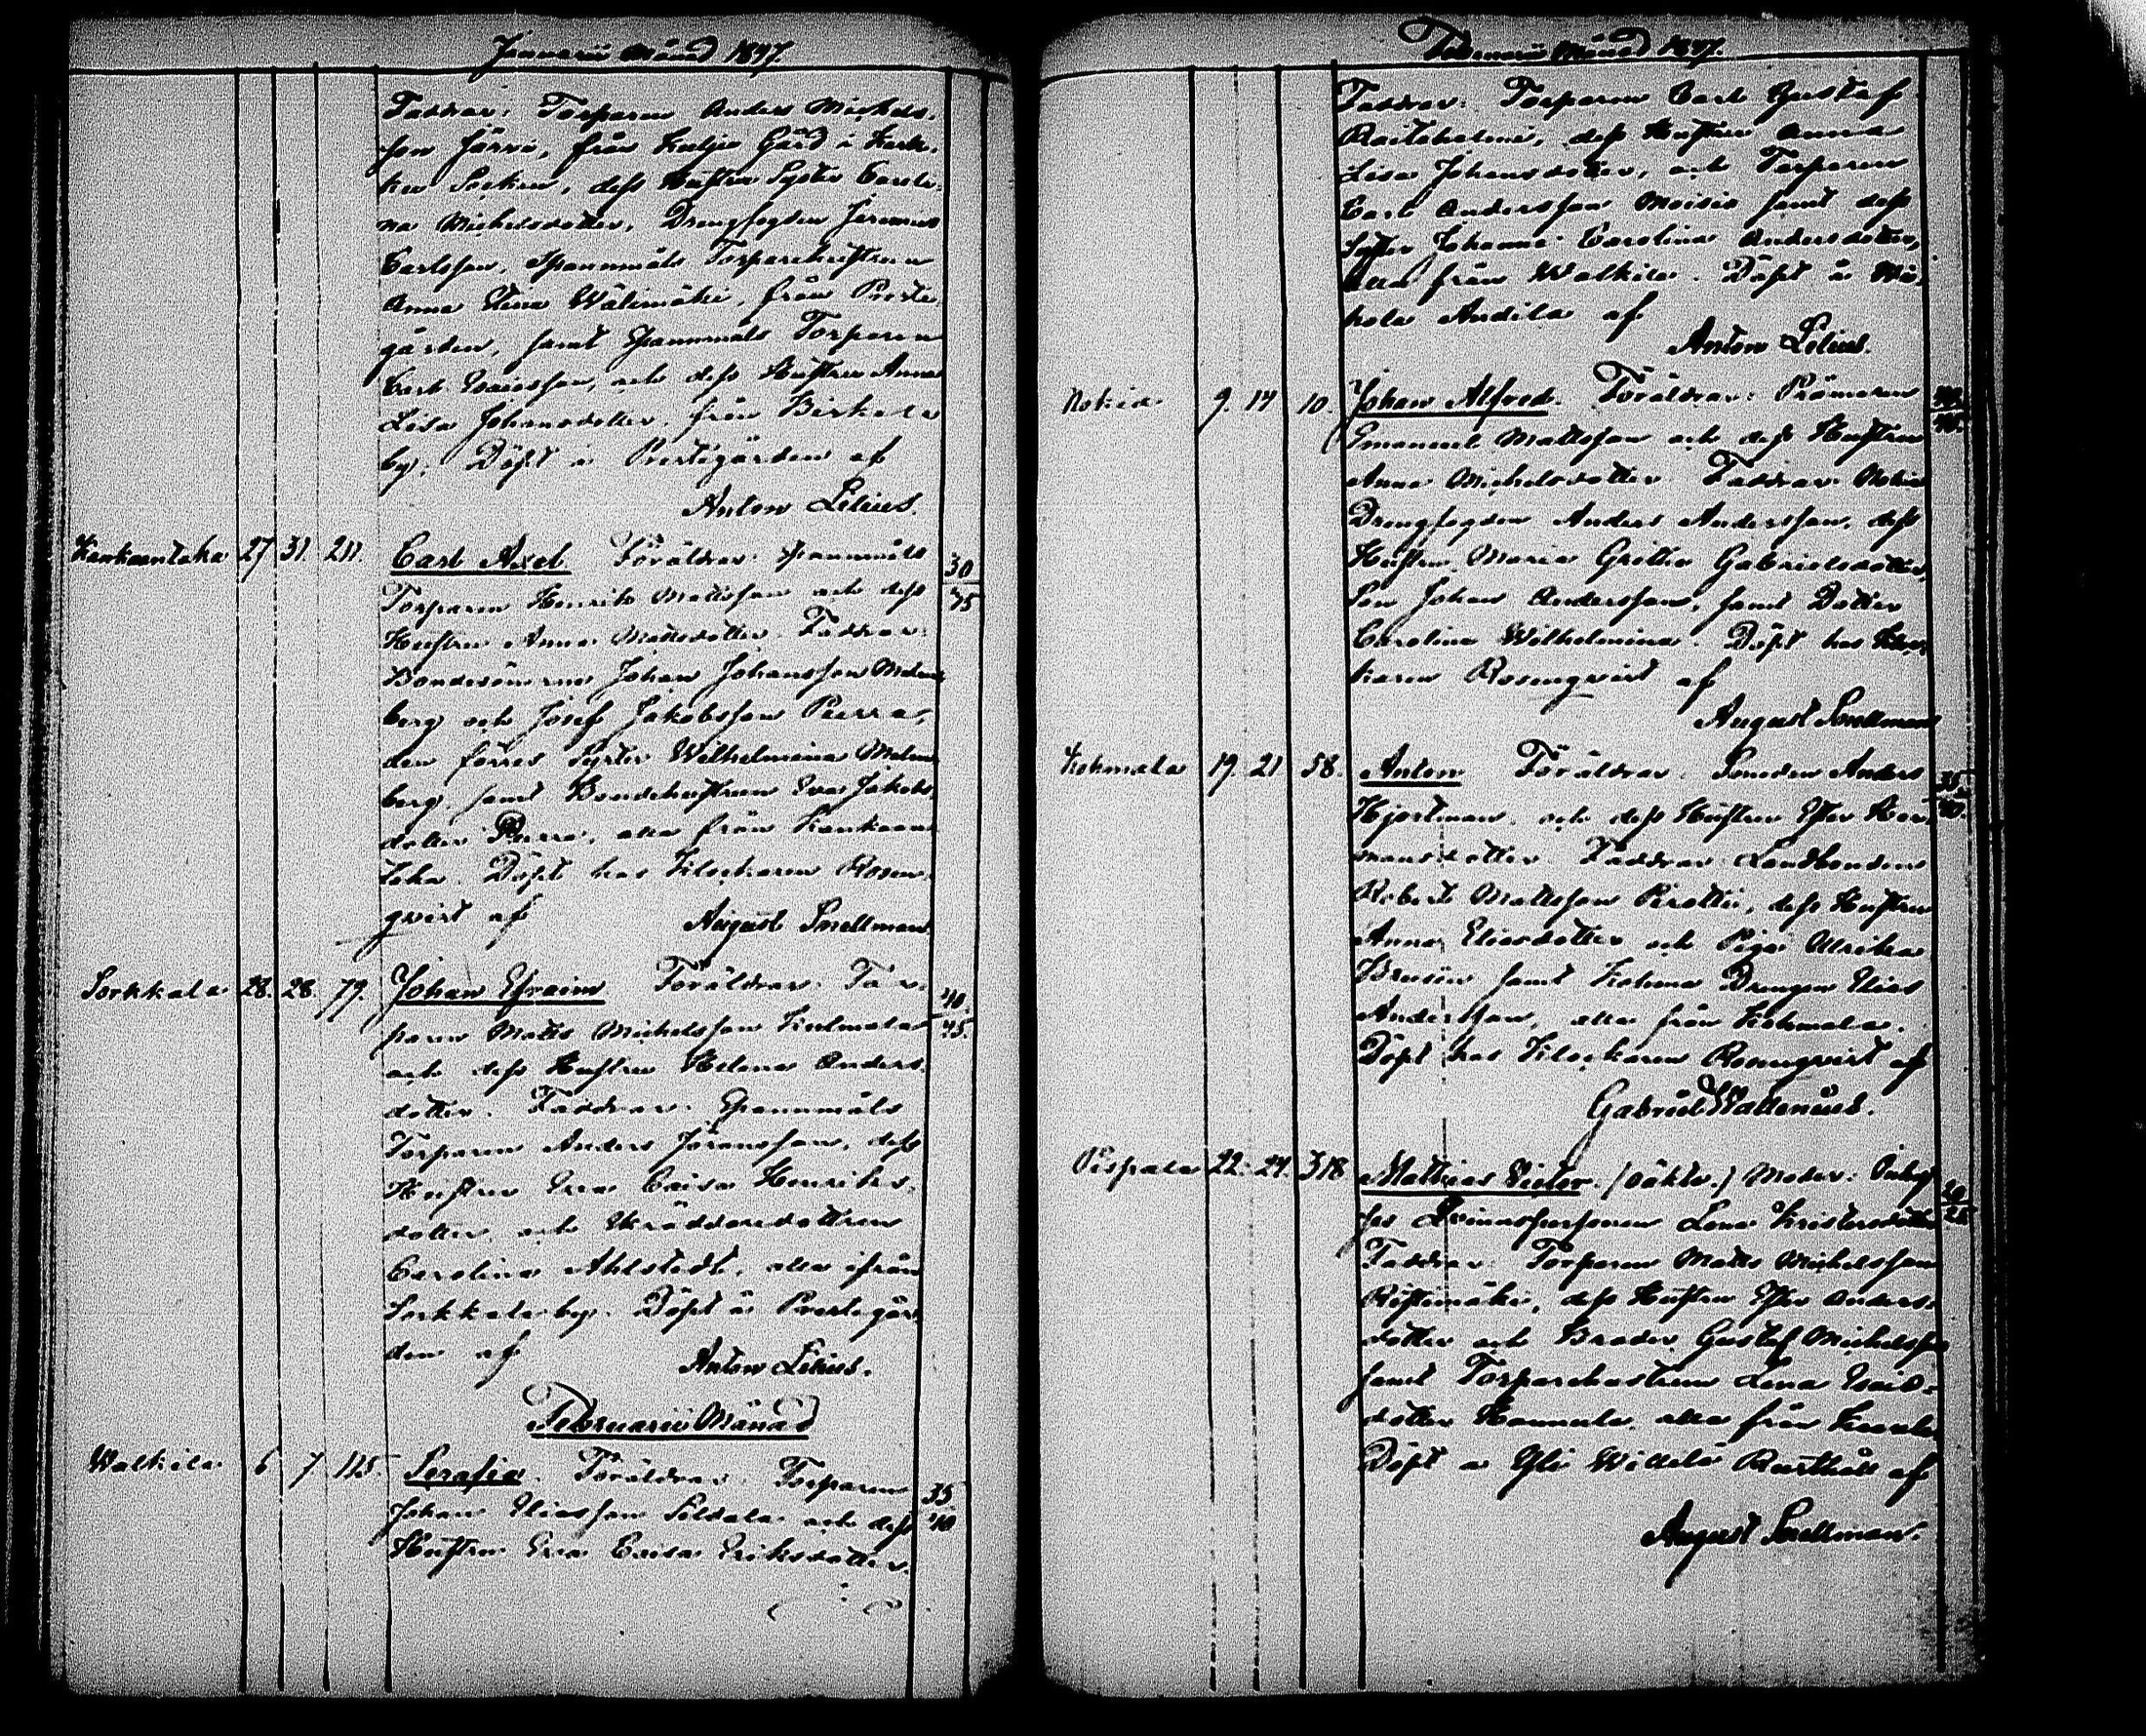 Januarii Månad 1847.
Faddrar: Torparen Anders Michels-
son Järvi, från Kulju Gård i
Socken, dess Hustru Syster Caroli-
na Michelsdotter, Drengfogden Jeremias
Carlsson, Spannmåls Torparehustrun
Anna Stina Wälimäki, från Preste-
gården, samt Spannmåls Torparen
Carl Esaiasson, och dess Hustru Anna
Lisa Johansdotter, från Birkala
by. Döpt i Prestegården af
Anton Lilius.
Kankaantaka 27 31. 211. Carl Axel Föräldrar: Spannmåls 30
Torparen Henrik Mattsson och dess 45
Hustru Anna Mattsdotter. Faddrar:
Bondesönerne Johan Johansson Malm-
berg och Josef Jakobsson Perra,
den förres Syster Wilhelmina Malm-
berg, samt Bondehustrun Eva Jakobs-
dotter Perra, alla från Kankaan-
taka. Döpt hos Klockaren Rosen-
qvist af August Snellman.
Sorkkala 28. 28. 79. Johan Efraim Föräldrar: Tor- 40.
paren Matts Michelsson Kulmala 45.
och dess Hustru Helena Anders-
dotter. Faddrar: Spannmåls
Torparen Anders Göransson, dess
Hustru Eva Caisa Henriks-
dotter och Skräddaredottren
Carolina Ahlstedt, alla ifrån
Sorkkala by. Döpt i Prestegår-
den af Anton Lilius.
Februarii Månad
Walkila 6 7. 115 Serafia. Föräldrar: Torparen 35
Johan Eliasson Sildala och dess 40
Hustru Eva Caisa Eriksdotter.
Februarii Månad 1847.
Faddrar: Torparen Carl Gustaf
dess Hustru Anna
Lisa Johansdotter, och Torparen
Carl Andersson Moisio samt dess
Syster Johanna Carolina Andersdotter,
alla från Walkila. Döpt å
Andila af
Anton Lilius.
Nokia 9. 14 10. Johan Alfred. Föräldrar: Pråmaren 40.
Emanuel Mattsson och dess Hustru
Anna Michelsdotter. Faddrar: Nokia
Drengfogden Anders Andersson, dess
Hustru Maria Gretta Gabrielsdotter,
Son Johan Andersson, samt Dotter
Carolina Wilhelmina. Döpt hos Kloc-
karen Rosenqvist af
August Snellman
Kohmala 19. 21 58. Anton Föräldrar: Smeden Anders 35
Hjortman och dess Hustru Ester Her- 40.
mansdotter. Faddrar: Landbonden
Robert Mattsson Pirtti, dess Hustru
Anna Eliasdotter och Piga Ulrika
Brusiin samt Kohma Drengen Elias
Andersson, alla från Kohmala.
Döpt hos Klockaren Rosenqvist af
Gabriel Wallenius.
Pispala 22. 24. 318 Matthias Victor. (Oäkta.) Moder: Inhy-
ses Qvinspersonen Lena Kristersdotter
Faddrar: Torparen Matts Michelsson
Ristimäki, dess Hustru Ester Anders-
dotter och Broder Gustaf Michelsson
samt Torparehustrun Lena Esaias-
dotter Hannula alla från
Döpt å Yli Willilä Rusthåll af
August Snellman.